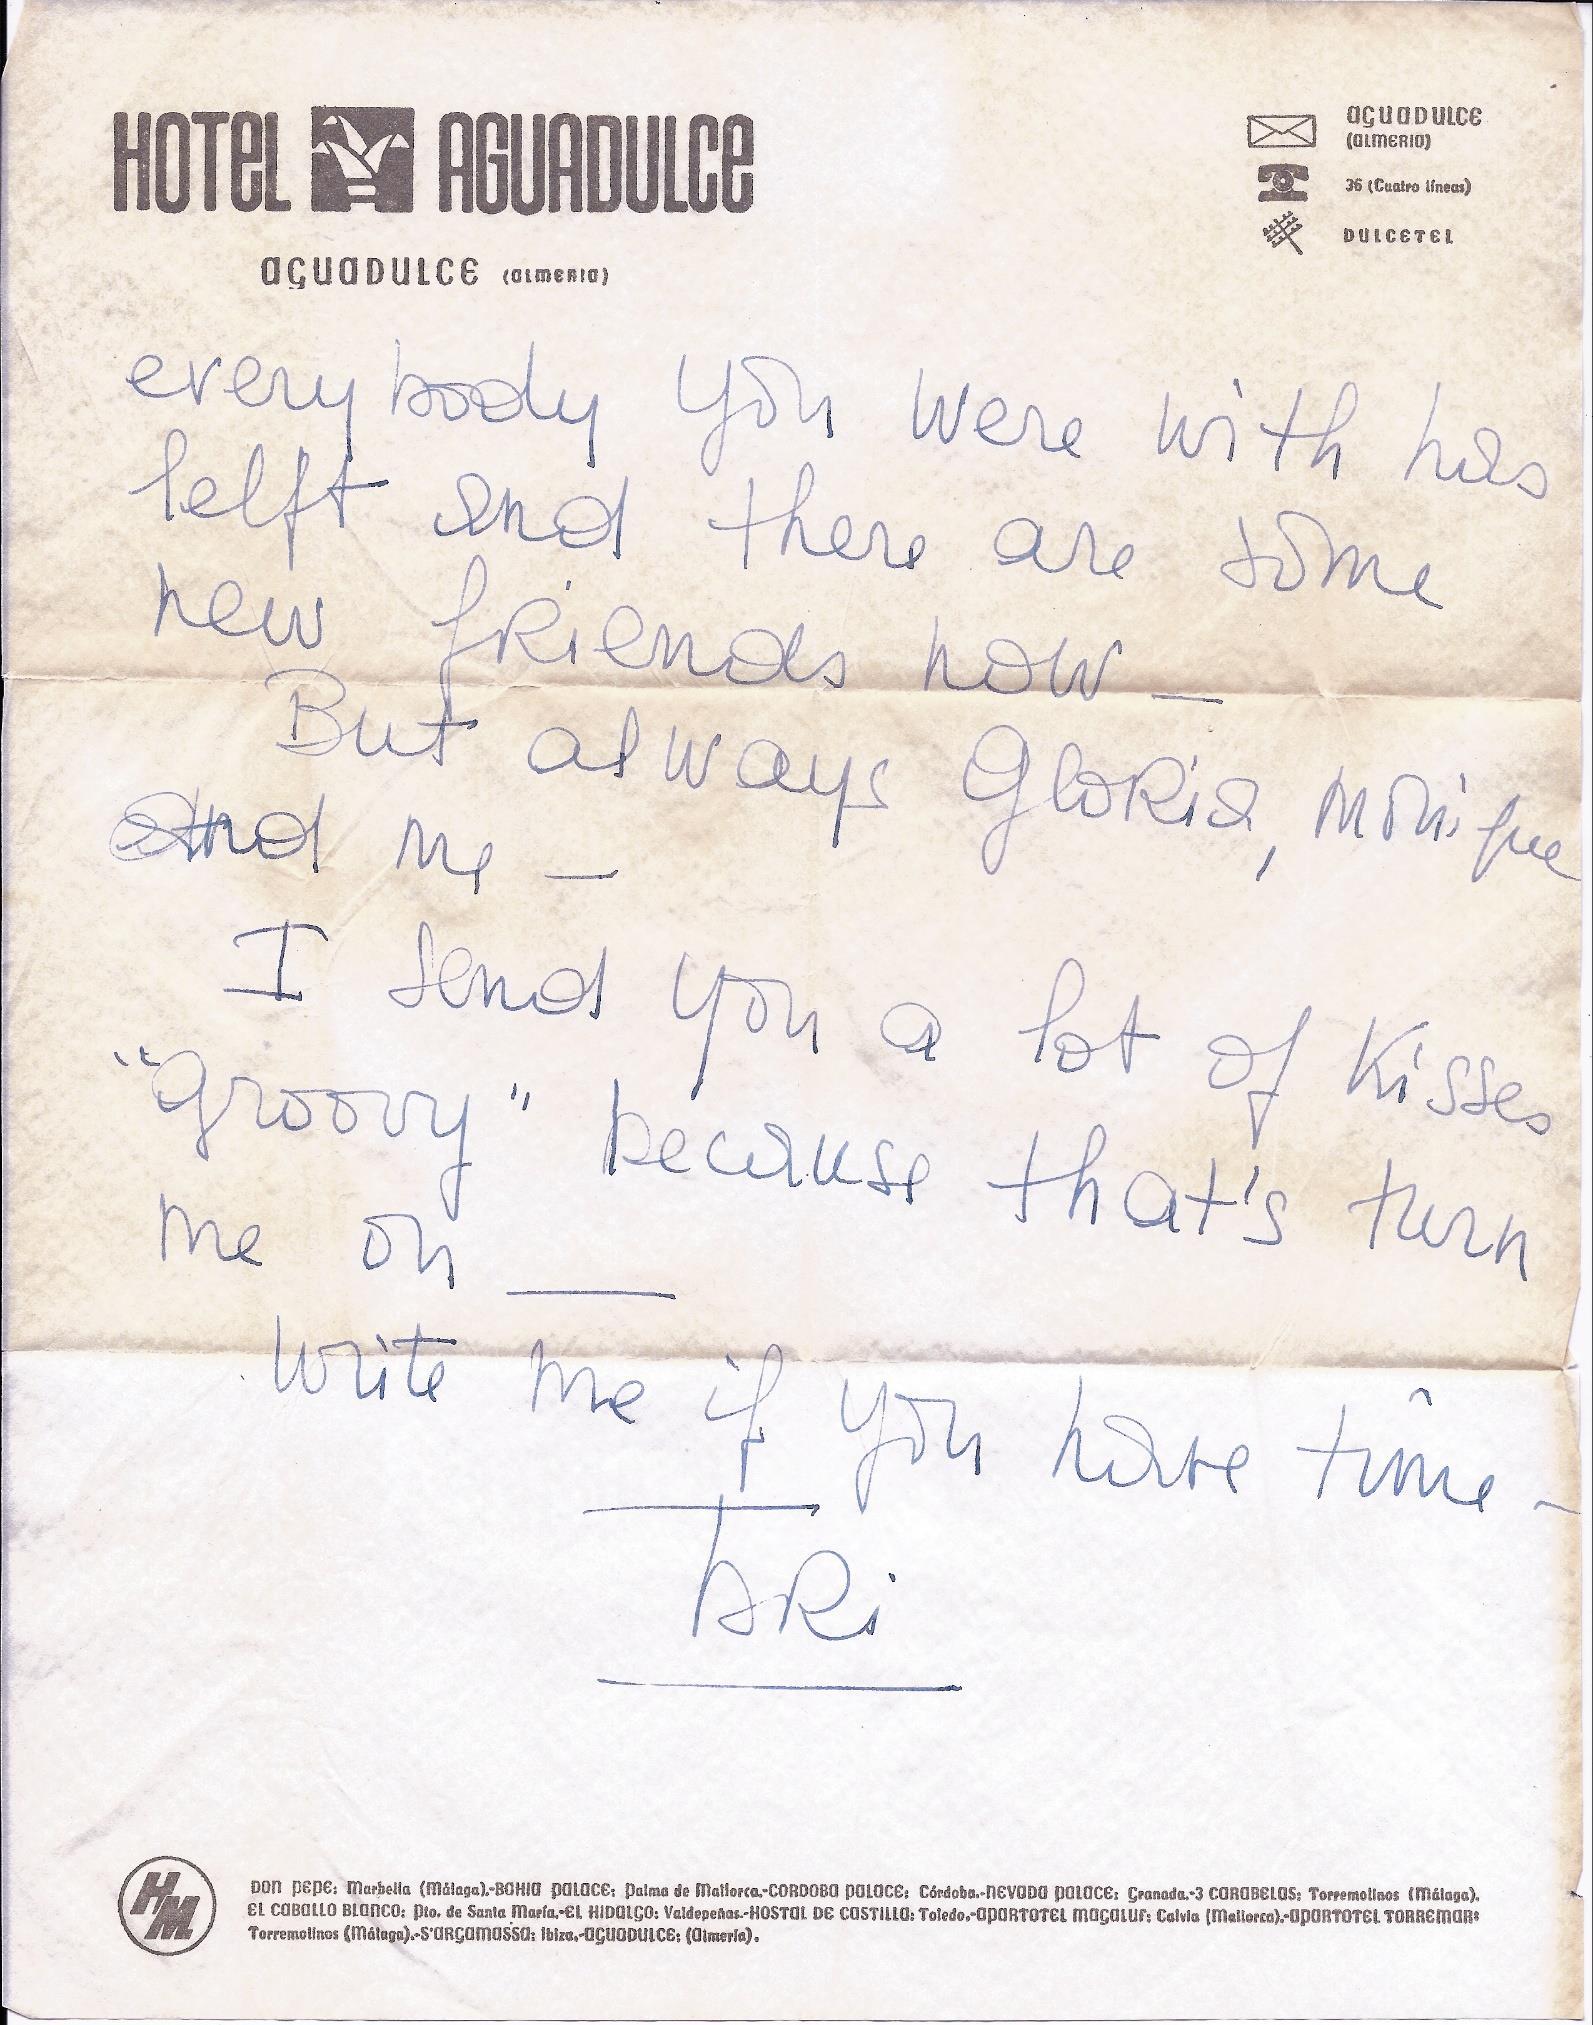 HOTEL AGUADULCE
AGUADULCE (ALMERIA)
AGUADULCE
(ALMERIA)
36 (Cuatro líneas)
DULCETEL
everybody you were with has
lelft and there are some
new friends now _
But always Gloria, Monique
and me _
I send you a lot of Kisses
"groovy" because that's turn
me on __
Write me if you have time -
ARi
HM
DON PEPE: Marbella (Málaga).-BAHIA PALACE: Palma de Mallorca.-CORDOBA PALACE: Córdoba.-NEVADA PALACE: Granada.-3 CARABELAS: Torremolinos (Málaga).
EL CABALLO BLANCO: Pto. de Santa María.-EL HIDALGO: Valdepeñas.-HOSTAL DE CASTILLA: Toledo.-APARTOTEL MAGALUF: Calvia (Mallorca).-APARTOTEL TORREMAR:
Torremolinos (Málaga).-S'ARGAMASSA: Ibiza.-AGUADULCE: (Almería).